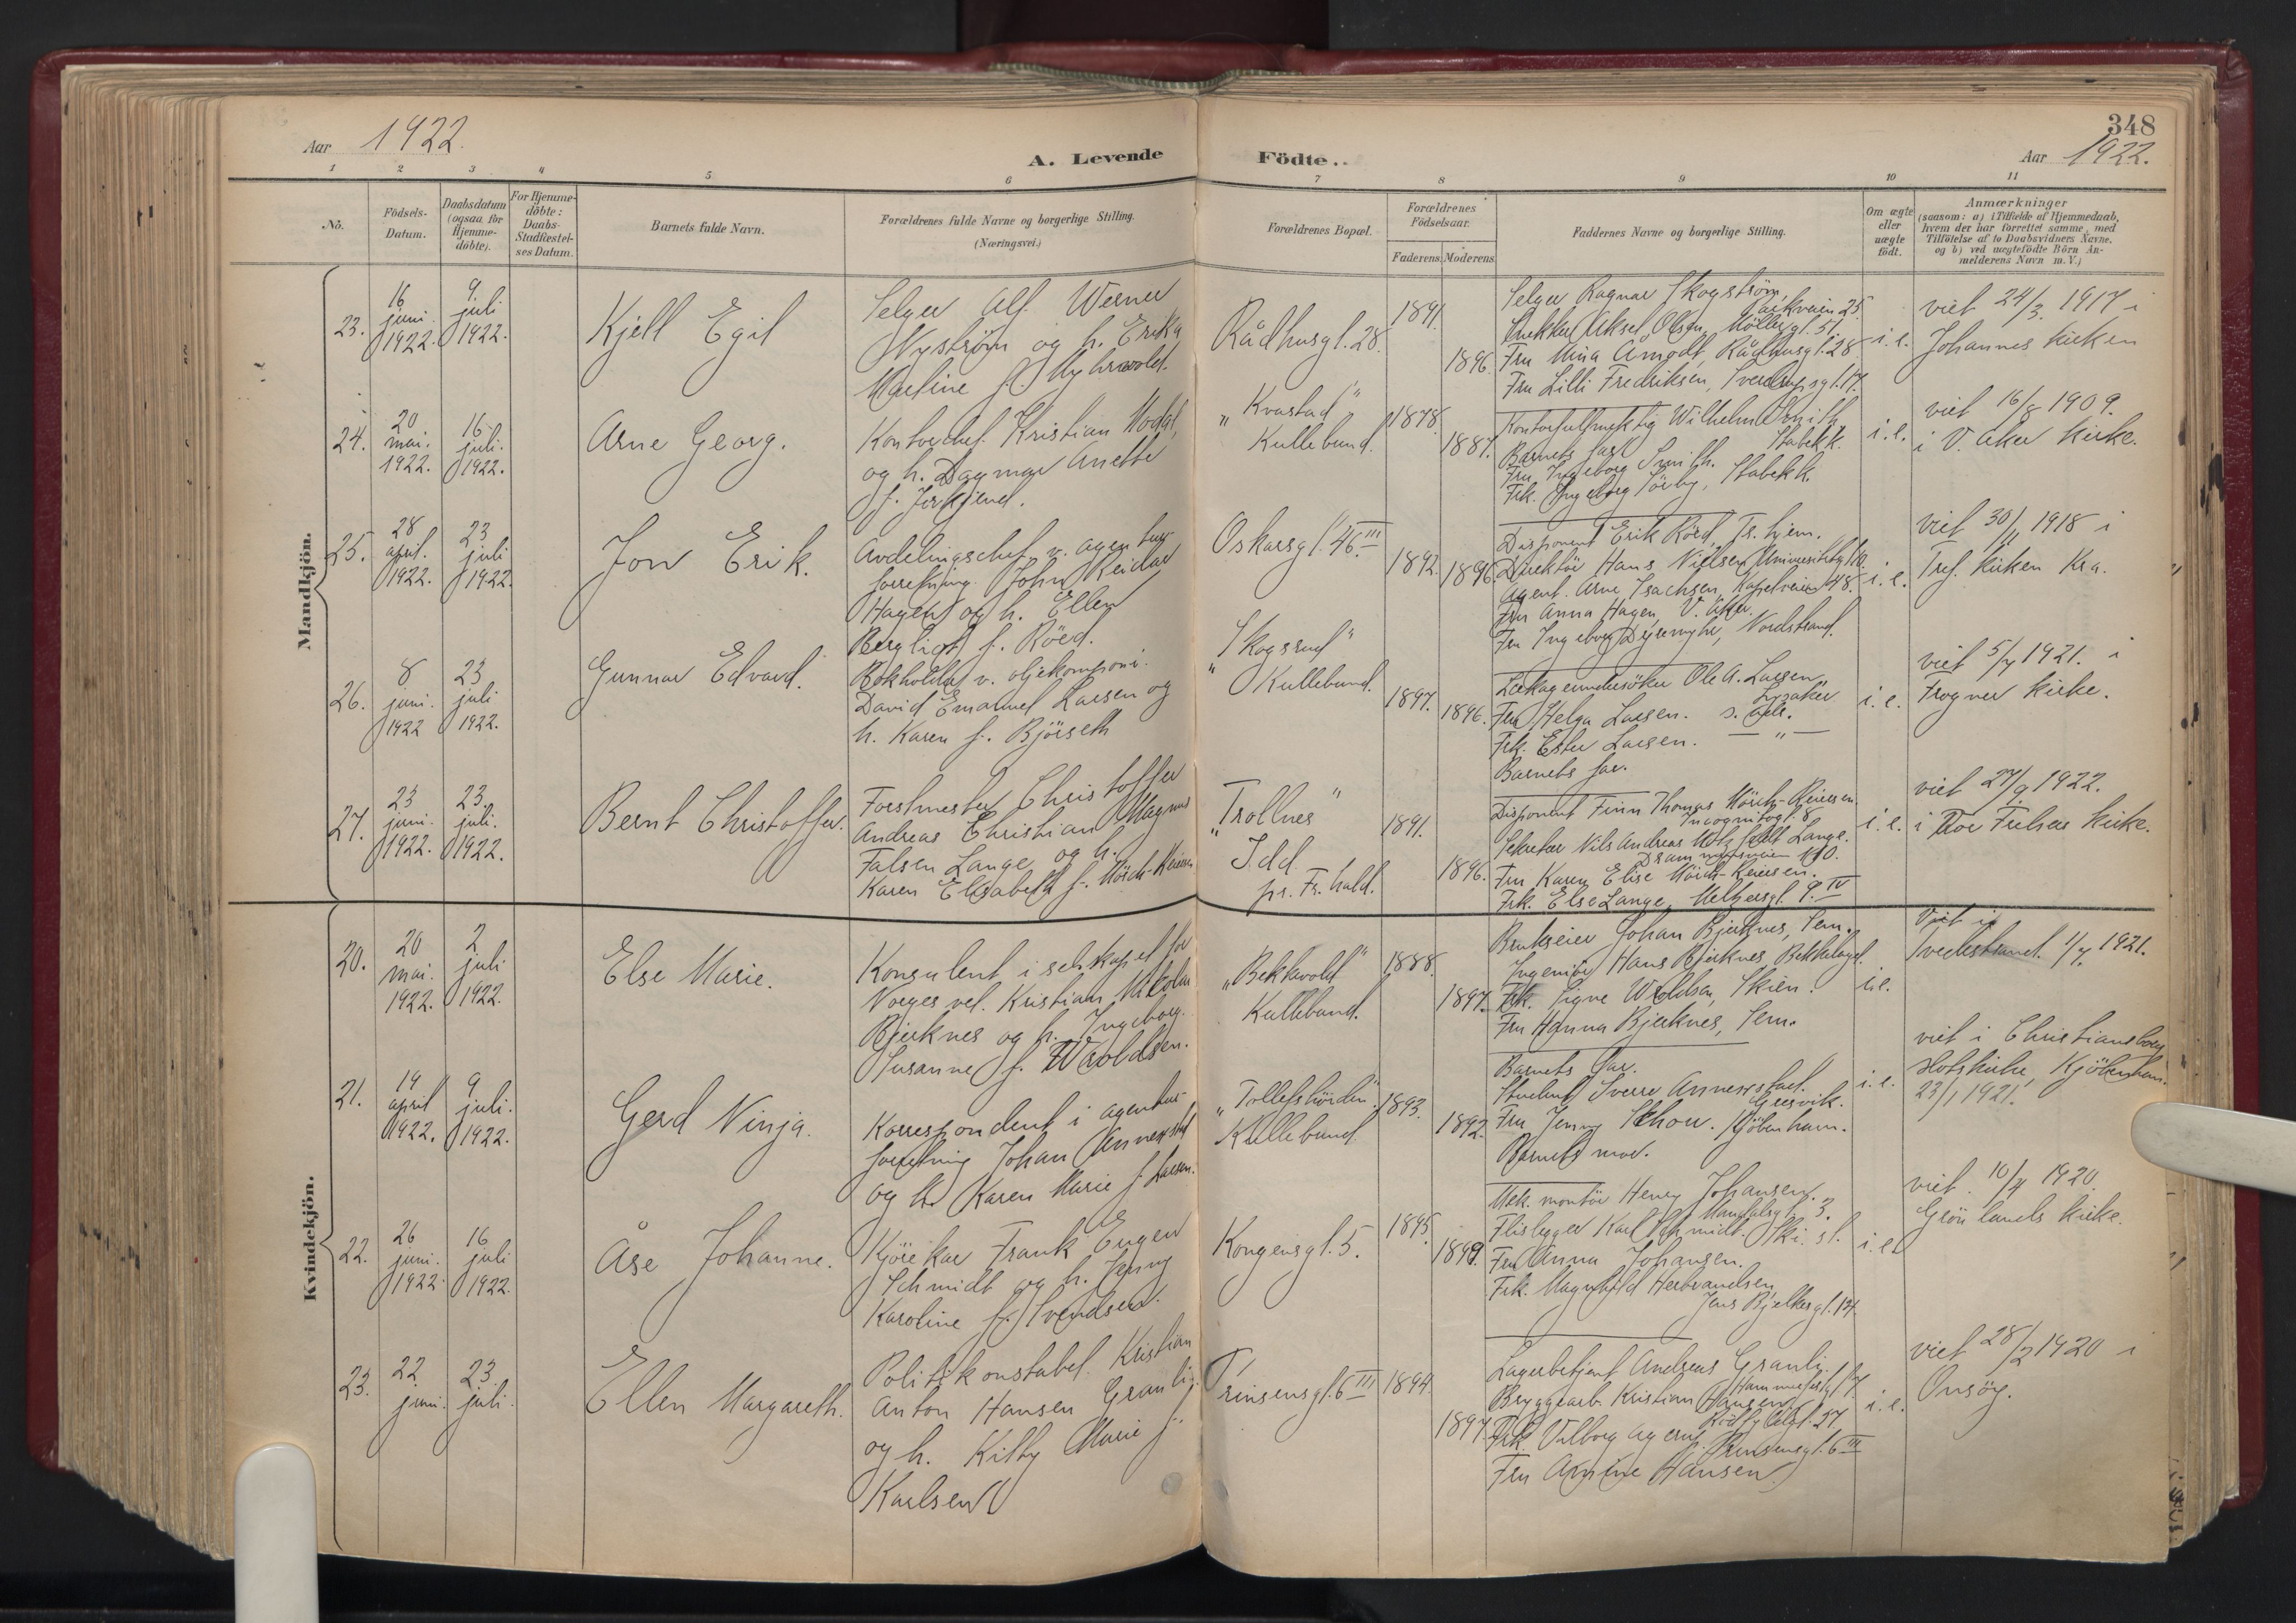 348
Aar 1922.
A. Levende Födte..
Aar 1922.
1 2 3 4 5 6 7 8 9 10 11
No.
Födsels-Datum.
Daabsdatum (ogsaa for Hjemme-döbte).
For Hjemme-döbte: Daabs-Stadfæstel-ses Datum.
Barnets fulde Navn.
Forældrenes fulde Navne og borgerlige Stilling.
(Næringsvei.)
Forældrenes Bopæl.
Forældrenes Födselsaar.
Faderens. Moderens.
Faddernes Navne og borgerlige Stilling.
Om ægte eller uægte födt.
Anmærkninger
(saasom: a) i Tilfælde af Hjemmedaab, hvem der har forrettet samme, med Tilföielse af to Daabsvidners Navne, og b) ved uægtefödte Börn An-melderens Navn m. V.)
Mandkjön.
23.
16 juni 1922.
9 juli 1922.
Kjell Egil
Selger Alf Werner
Nystrøm og h. Erika
Martine f. Myhrvold.
Rådhusgt. 28.
1891.
1896.
Selger Ragnar Skogstrøm,
Aksel Olsen, Möllergt. 51.
Fru Mina Amodt, Rådhusgt. 28
Fru Lilli Fredriksen, Sverdrupsgt. 17.
i. e.
viet 24/3 1917 i
Johannes kirken
24.
20 mai. 1922.
16 juli. 1922.
Arne Georg.
Kontorchef Kristian Modal,
og h. Dagmar Anette
f. Jerkjend.
"Kvastad"
Kullebund.
1878.
1887.
Kontorfullmektig Wilhelm Smith,
Stabekk.
Barnets far
Fru Ingeborg Smith.
Frk. Ingeborg Sörby, Stabekk.
i. e.
viet 16/8 1909.
i V. Aker kirke.
25.
28 april. 1922.
23 juli 1922.
Jon Erik.
Avdelingschef v. agentur-
forretning John Reidar
Hagen og h. Ellen
Bergliot f. Röed.
Oskarsgt. 46 III
1892.
1896
Disponent Erik Röed, Fr. hjem.
Direktör Hans Nielsen, Universitetsgt. 10.
Agent Arne Isachsen, Kapelveien 48.
Fru Anna Hagen, V. Aker.
Fru Ingeborg Nordstrand.
i. e.
viet 30/11 1918 i
Tref. kirken Kra.
26.
8 juni. 1922
23 juli 1922.
Gunnar Edvard.
Bokholder v. oljekompani.
David Emanuel Larsen og
h. Karen f. Björseth
"Skogsrud"
Kullebund.
1897.
1896.
Ole A. Larsen,
Lysaker
Fru Helga Larsen. s. adr.
Frk. Ester Larsen. — " —
Barnets far.
i. e.
viet 5/4 1921. i
Frogner kirke.
27.
23 juni. 1922.
23. juli. 1922.
Bernt Christoffer.
Forstmester Christoffer
Andreas Christian Magnus
Falsen Lange og h.
Karen Elisabeth f. Mörch-Reiersen
"Trollnes"
Idd
pr. Fr. hald.
1891.
1896.
Disponent Finn Thomas Mörch-Reiersen.
Incognitogt. 8
Sekretær Nils Andreas Lange.
Drammensveien 110.
Fru Karen Elise Mörch-Reiersen.
Frk. Else Lange, Meltzersgt. 9. IV
i. e.
viet 27/9 1922.
i Vor Frelsers kirke.
Kvindekjön.
20.
20 mai. 1922.
2 juli 1922.
Else Marie.
Konsulent i selskapet for
Norges vel. Kristian Nikolai
Bjerknes og h. Ingeborg
Susanne f. Wroldsen.
"Bekkvold"
Kullebund.
1888.
1897.
Brukseier Johan Bjerknes, Sem.
Ingeniör Hans Bjerknes, Bekkelaget.
Frk. Signe Wroldsen, Skien.
Fru Hanna Bjerknes, Sem.
i. e.
Viet i
Tvedestrand 1/7 1921.
21.
19 april 1922.
9 juli. 1922.
Gerd Ninja.
Korrespondent i agentur-
forretning Johan Annerstad
og h. Karen Marie f. Larsen.
Kullebund.
1893.
1892.
Barnets far.
Student Sverre Annerstad.
Gresvik.
Fru Jenny Schou. Kjöbenham.
Barnets mor.
i. e.
viet i Christiansborg
slotskirke, Kjöbenham.
23/1 1921.
22.
26 juni. 1922.
16 juli 1922.
Åse Johanne.
Kjörekar Frank Eugen
Schmidt og h. Jenny
Karoline f. Svendsen.
Kongensgt. 5.
1895.
1899.
Mek. montör Henry Johansen.
Mandalsgt. 3.
Flislegger Karl Schmidt. Ski st.
Fru Anna Johansen.
Frk. Magnhild Herbrandsen,
Jens Bjelkesgt. 14.
i. e.
viet 10/4 1920.
Grönlands kirke.
23.
22 juni.
23. juli.
Ellen Margareth.
Politikonstabel Kristian
Anton Hansen Granli
og h. Kitty Marie f.
Karlsen
Prinsensgt. 6 III
1894.
1897.
Lagerbetjent Andreas Granli.
Hammerfestgt. 7.
Bryggearb. Kristian Hansen,
Frk. Valborg
Prinsensgt. 6 III
Fru Amine Hansen
i. e.
viet 28/2 1920 i
Onsöy.